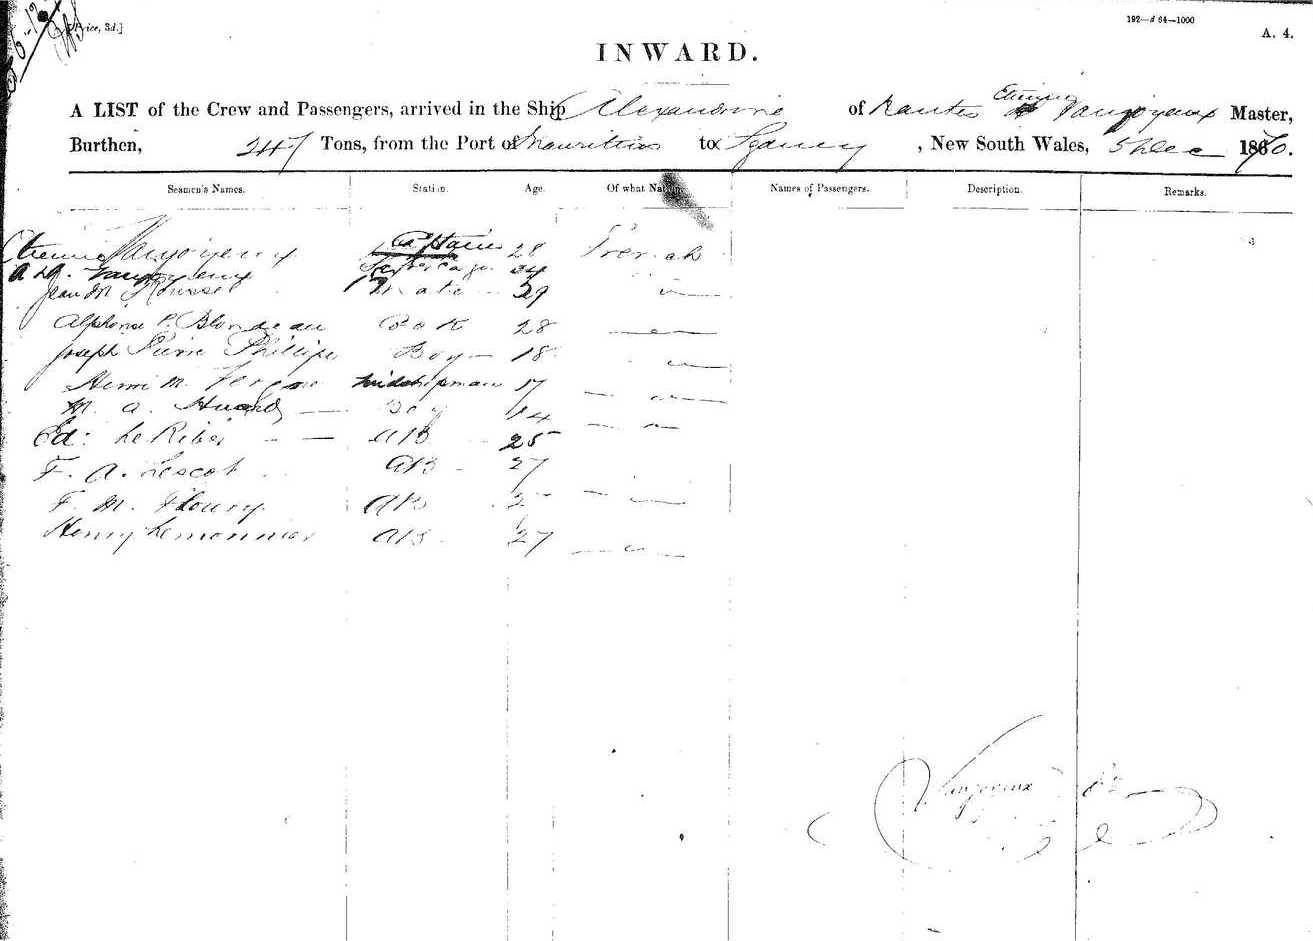 [Price, 3d.]
192—d 64—1000
A. 4.
INWARD.
A LIST of the Crew and Passengers, arrived in the Ship Alexandrine of Nantes Etienne Vanjoyeux Master,
Burthen, 247 Tons, from the Port of Mauritius to Sydney, New South Wales, 5 Dec 1870.
Seamen's Names. Station. Age. Of what Nation. Names of Passengers. Description. Remarks.
Etienne Vanjoyeux Captain 28 French
Vanjoyeux 34
Jean M Roussel 1 Mate 29 "
Alphonse P. Blondeau Cook 28 "
Joseph Pierre Phillipe Boy 18 "
Henri M. midshipman 17 "
M. A. Huard Boy 14 "
Ed: Le Ribe AB 25
F. A. Lescot AB 27
F. M. Floury AB 2 "
Henry Lemonnier AB 27 "
Vanjoyeux